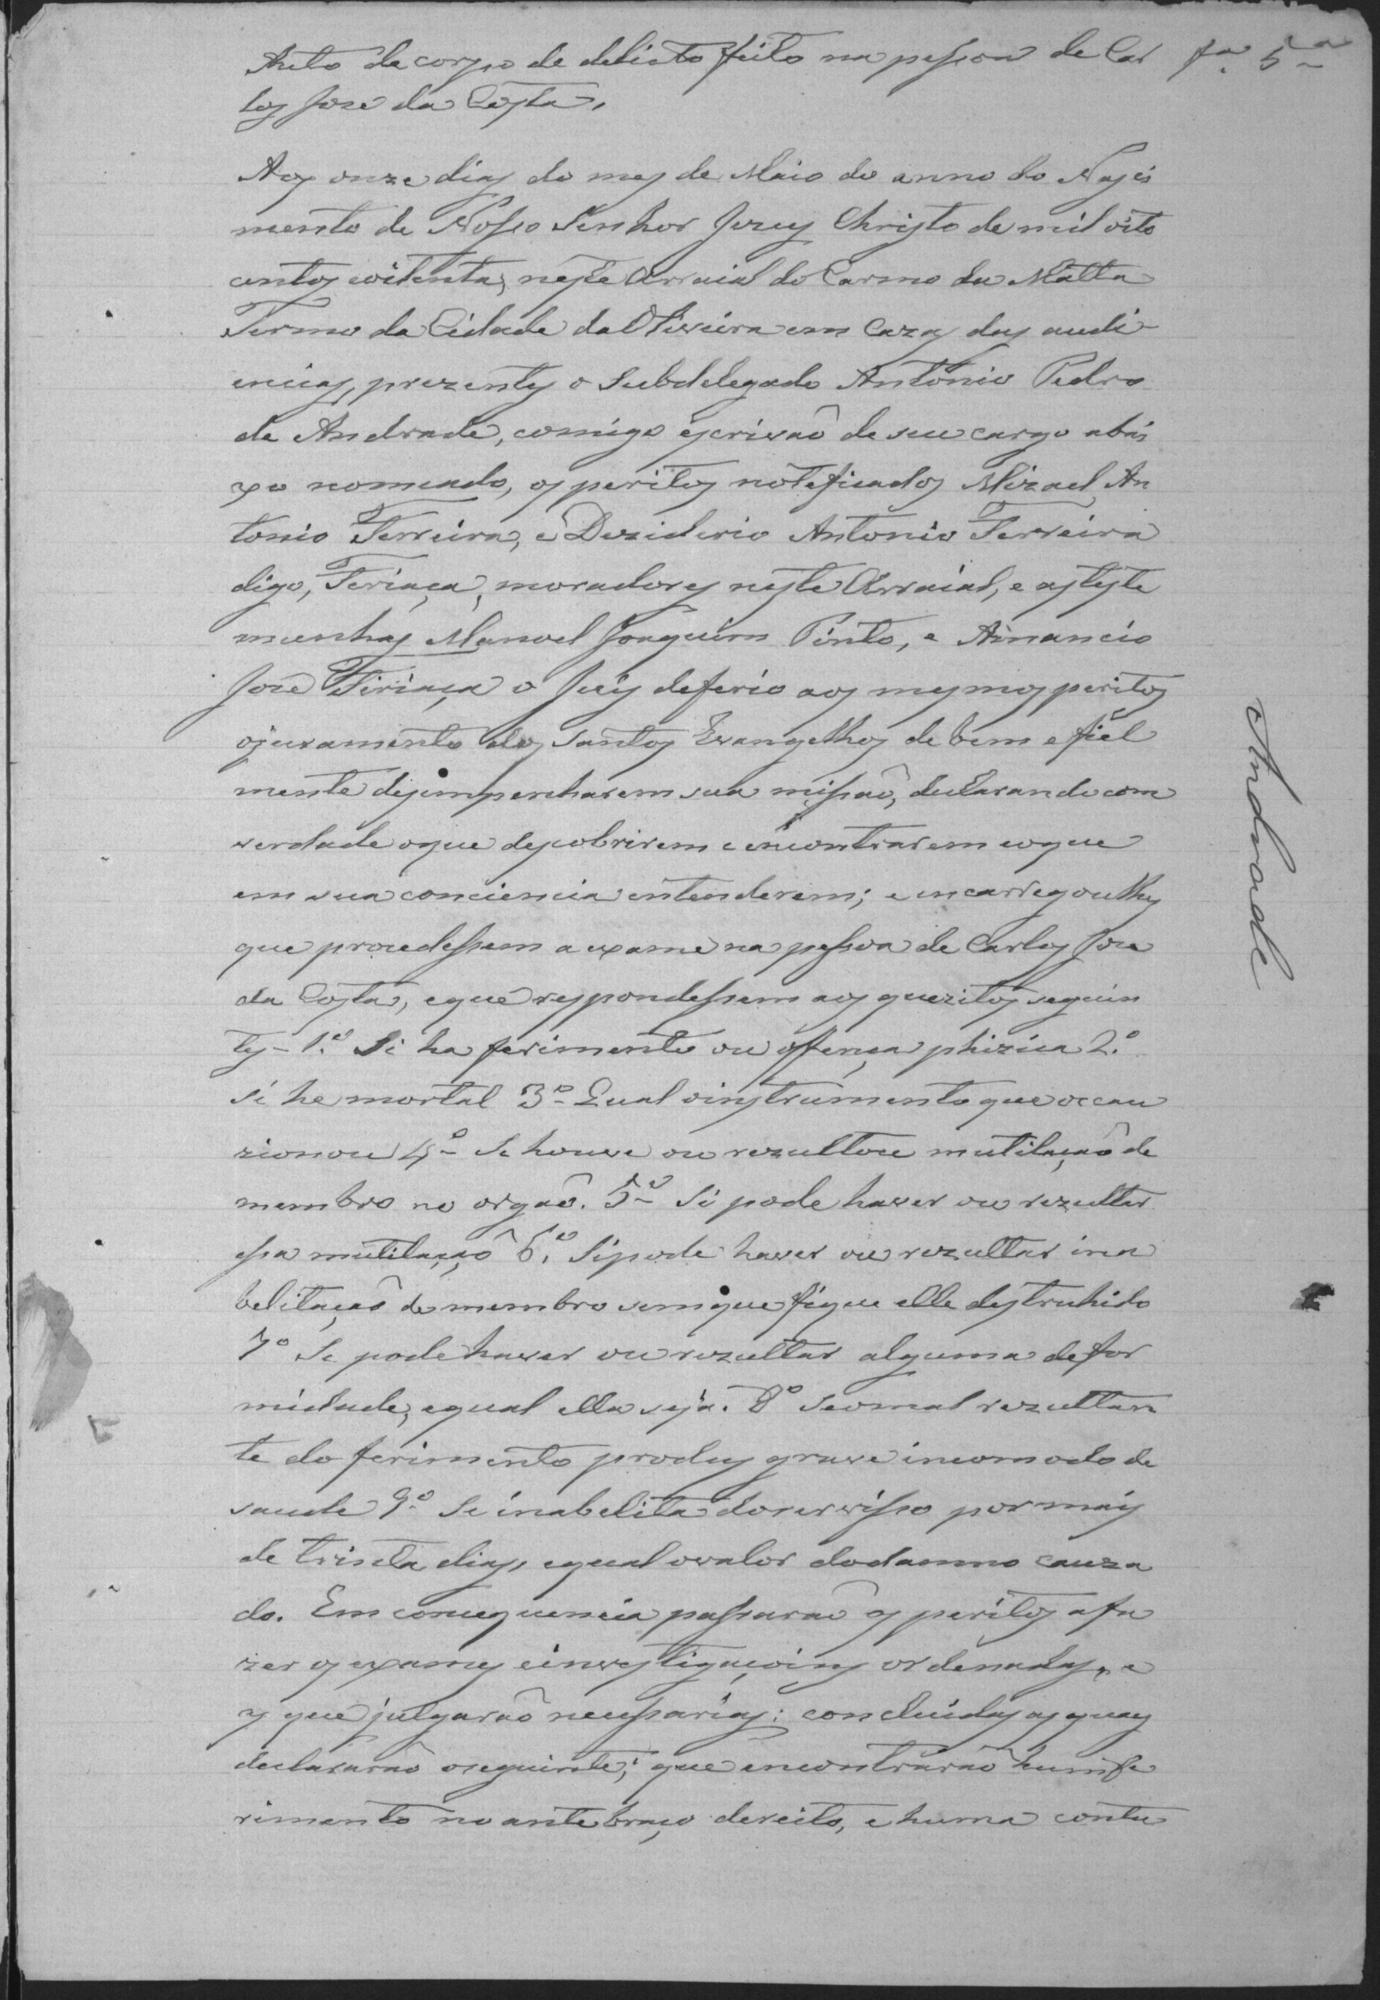 Auto de corpo de delicto feito na pessoa de Car fª. 5ª
los Jose da Costa.
Aos onze dias do mes de Maio do anno do Nasci
mento de Nosso Senhor Jezus Christo de mil oito
centos e oitenta, neste Arraial do Carmo da Matta
Termo da Cidade da Oliveira em Caza das audi
encias, prezentes o Subdelegado Antônio Pedro
de Andrade, comigo escrivaõ de seu cargo abai
xo nomeado, os peritos noteficados Mizael An
tonio Ferreira, e Deziderio Antonio Ferreira
digo, Feriaça, moradores neste Arraial, e as teste
munhas Manoel Joaquim Pinto, e Amancio
Jose Firiaça o Juis deferio aos mesmos peritos
o juramento dos Santos Evangelhos de bem e fiel
mente desimpenharem sua missaõ, declarando com
verdade o que descobrirem e encontrarem e o que
em sua conciencia entenderem; e encarregou lhes
que procedessem a exame na pessoa de Carlos Jose
da Costa, e que respondessem aos quezitos seguin
tes - 1.º Si ha ferimento ou offença phizica 2.º
si he mortal 3.º Qual o instrumento que occau
zionou 4º Se houve ou rezultou mutilaçaõ de
membro no orgaõ. 5º Si pode haver ou rezultar
essa mutilaçaõ 6.º Si pode haver ou rezultar ina
belitaçaõ de membro sem que fique elle destruhido
7º Se pode haver ou rezultar alguma defor
midade, e qual ella seja. 8º Se o mal rezultan
te do ferimento produs grave incomodo de
saude 9º Se inabelita do servisso por mais
de trinta dias, e qual o valor do damno cauza
do. Em consequencia passaraõ os peritos a fa
zer os exames e investigaçoins ordenadas, e
os que julgaraõ necessarios: concluidas as quaes
declararaõ o seguinte; que encontraraõ hum fe
rimento no ante braço dereito, e huma contu
Andrade